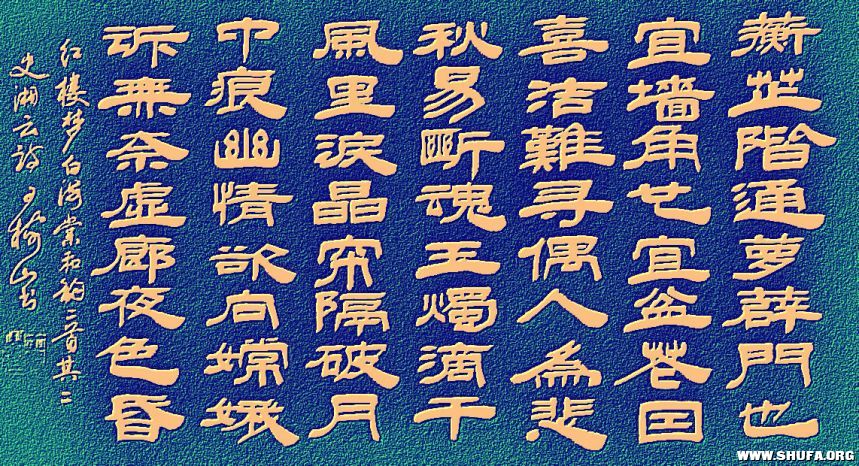 蘅芷階通萝薜門也
宜墙角也宜盆花因
喜洁難寻偶人為悲
秋易断魂玉燭滴干
風里淚晶帘隔破月
中痕幽情欲向嫦娥
訴無奈虚廊夜色昏
红楼梦白海棠和韵二首其二
史湘云诗
WWW.SHUFA.ORG